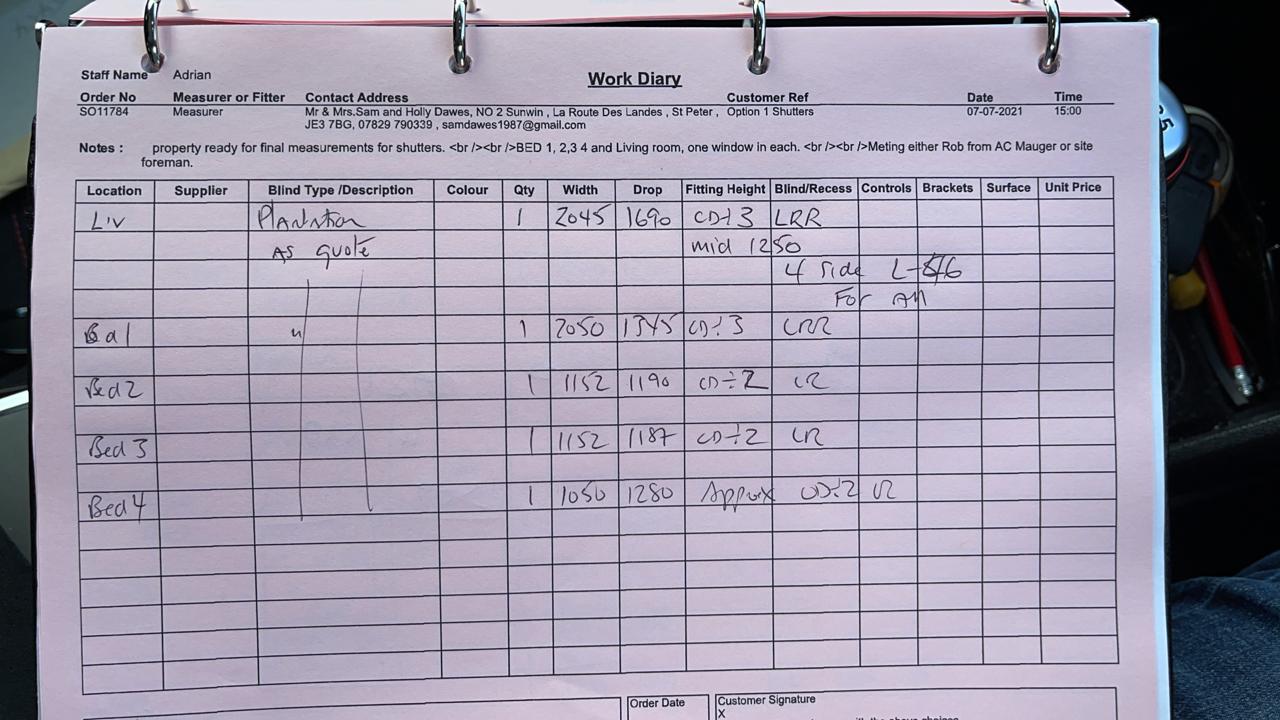 Work Diary
Staff Name Adrian
Order No Measurer or Fitter Contact Address Customer Ref Date Time
SO11784 Measurer Mr & Mrs.Sam and Holly Dawes, NO 2 Sunwin , La Route Des Landes , St Peter , Option 1 Shutters 07-07-2021 15:00
JE3 7BG, 07829 790339 , samdawes1987@gmail.com
Notes : property ready for final measurements for shutters. <br /><br />BED 1, 2,3 4 and Living room, one window in each. <br /><br />Meting either Rob from AC Mauger or site
foreman.
Location Supplier Blind Type /Description Colour Qty Width Drop Fitting Height Blind/Recess Controls Brackets Surface Unit Price
Liv Plantation 1 2045 1690 CD÷3 LRR
As quote mid 1250
4 side L-
For All
1 2050 1345 CD÷3 LRR
Bed 2 1 1152 1190 CD÷2 LR
Bed 3 1 1152 1187 CD÷2 LR
Bed 4 1 1050 1280 Approx CD÷2 LR
Order Date Customer Signature
X